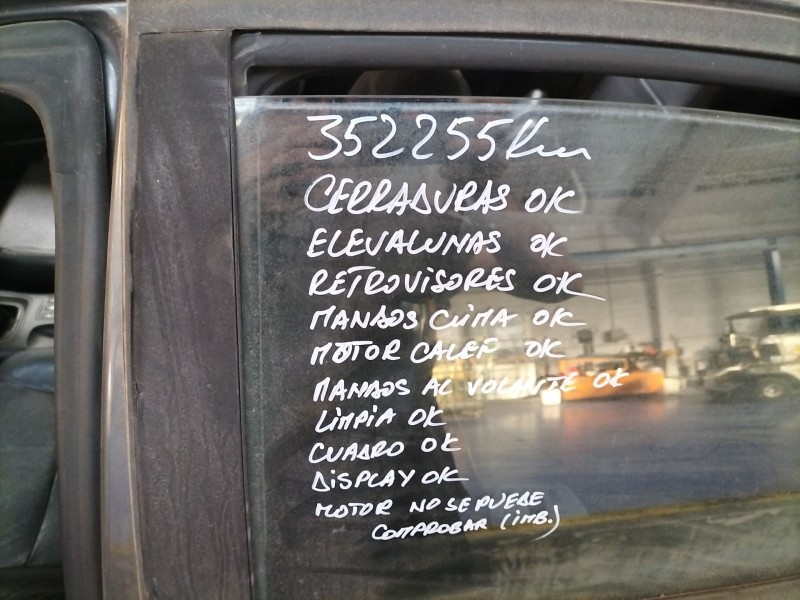 352255 Km
CERRADURAS OK
ELEVALUNAS OK
RETROVISORES OK
MANDOS CLIMA OK
MOTOR CALEF OK
MANDOS AL VOLANTE OK
LIMPIA OK
CUADRO OK
DISPLAY OK
MOTOR NO SE PUEDE
COMPROBAR (IMB.)